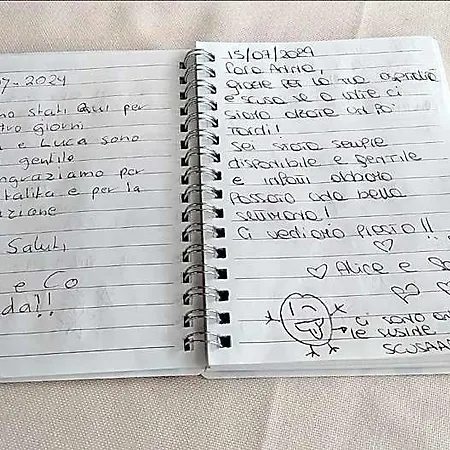 07-2024
mo stati qui per
tro giorni
e Luca sono
gentile
ngraziamo per
talita e per la
zione
Saluti
e Co
da!!
15/07/2024
Cara Anna,
grazie per la tua ospitalità
e scusa se a volte ci
siamo alzate un po'
tardi!
Sei stata sempre
disponibile e gentile
e infatti abbiamo
passato una bella
settimana!
Ci vediamo presto!!
Alice e
ci sono
le susine
SCUSAA